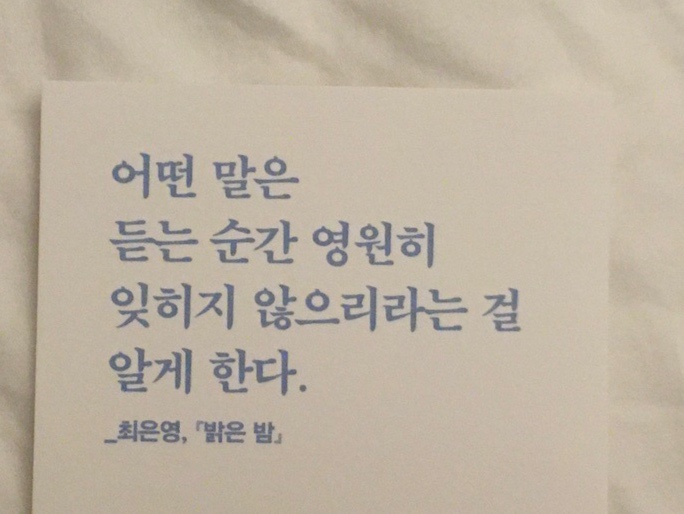 어떤 말은
듣는 순간 영원히
잊히지 않으리라는 걸
알게 한다.
_최은영, 『밝은 밤』